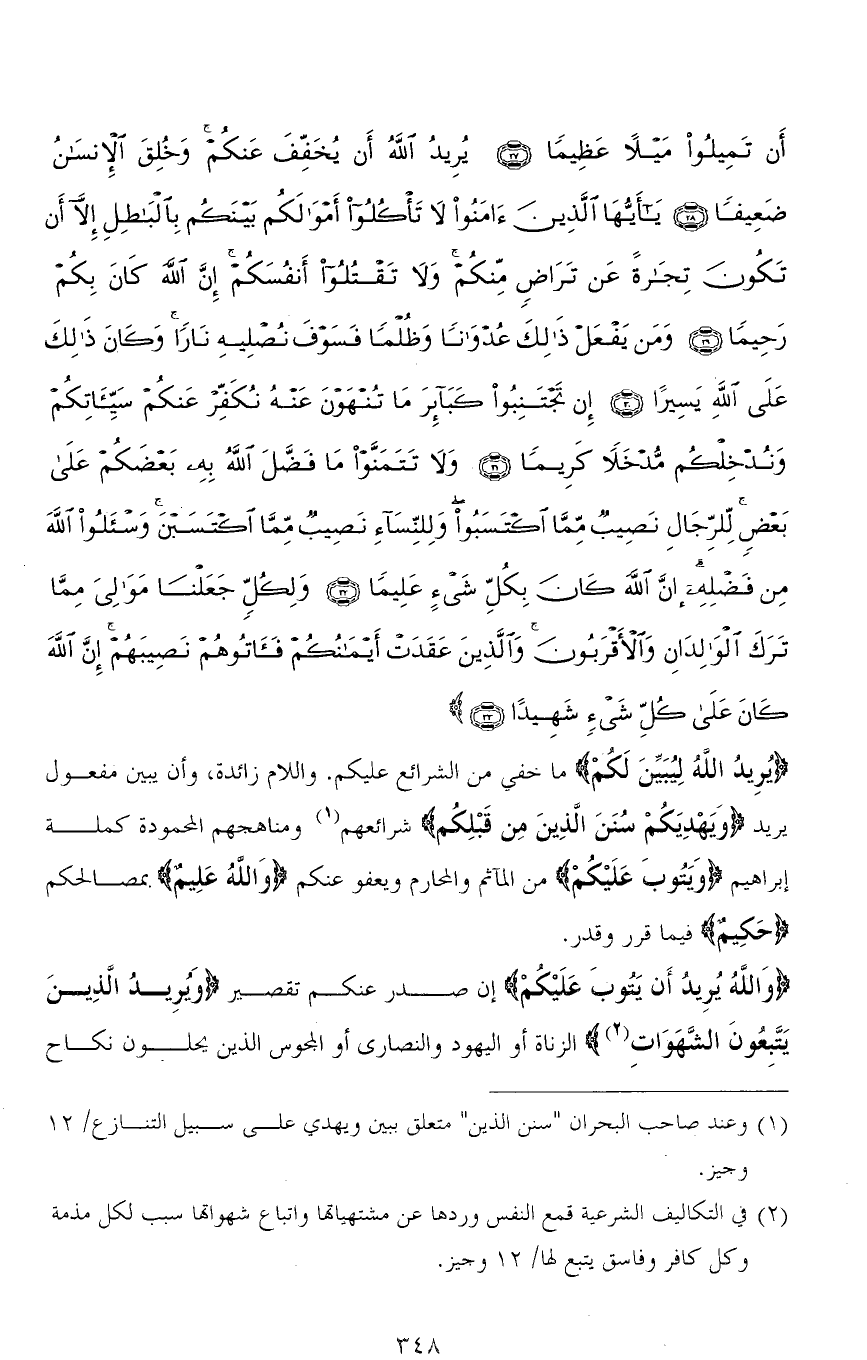 أَن تَمِيلُوا۟ مَيْلًا عَظِيمًا ﴿٢٧﴾ يُرِيدُ ٱللَّهُ أَن يُخَفِّفَ عَنكُمْ ۚ وَخُلِقَ ٱلْإِنسَـٰنُ
ضَعِيفًا ﴿٢٨﴾ يَـٰٓأَيُّهَا ٱلَّذِينَ ءَامَنُوا۟ لَا تَأْكُلُوٓا۟ أَمْوَٰلَكُم بَيْنَكُم بِٱلْبَـٰطِلِ إِلَّآ أَن
تَكُونَ تِجَـٰرَةً عَن تَرَاضٍ مِّنكُمْ ۚ وَلَا تَقْتُلُوٓا۟ أَنفُسَكُمْ ۚ إِنَّ ٱللَّهَ كَانَ بِكُمْ
رَحِيمًا ﴿٢٩﴾ وَمَن يَفْعَلْ ذَٰلِكَ عُدْوَٰنًا وَظُلْمًا فَسَوْفَ نُصْلِيهِ نَارًا ۚ وَكَانَ ذَٰلِكَ
عَلَى ٱللَّهِ يَسِيرًا ﴿٣٠﴾ إِن تَجْتَنِبُوا۟ كَبَآئِرَ مَا تُنْهَوْنَ عَنْهُ نُكَفِّرْ عَنكُمْ سَيِّـَٔاتِكُمْ
وَنُدْخِلْكُم مُّدْخَلًا كَرِيمًا ﴿٣١﴾ وَلَا تَتَمَنَّوْا۟ مَا فَضَّلَ ٱللَّهُ بِهِۦ بَعْضَكُمْ عَلَىٰ
بَعْضٍ ۚ لِّلرِّجَالِ نَصِيبٌ مِّمَّا ٱكْتَسَبُوا۟ ۖ وَلِلنِّسَآءِ نَصِيبٌ مِّمَّا ٱكْتَسَبْنَ ۚ وَسْـَٔلُوا۟ ٱللَّهَ
مِن فَضْلِهِۦٓ ۗ إِنَّ ٱللَّهَ كَانَ بِكُلِّ شَىْءٍ عَلِيمًا ﴿٣٢﴾ وَلِكُلٍّ جَعَلْنَا مَوَٰلِىَ مِمَّا
تَرَكَ ٱلْوَٰلِدَانِ وَٱلْأَقْرَبُونَ ۚ وَٱلَّذِينَ عَقَدَتْ أَيْمَـٰنُكُمْ فَـَٔاتُوهُمْ نَصِيبَهُمْ ۚ إِنَّ ٱللَّهَ
كَانَ عَلَىٰ كُلِّ شَىْءٍ شَهِيدًا ﴿٣٣﴾ ﴾
﴿يُرِيدُ اللَّهُ لِيُبَيِّنَ لَكُمْ﴾ ما خفي من الشرائع عليكم. واللام زائدة، وأن يبين مفعول
يريد ﴿وَيَهْدِيَكُمْ سُنَنَ الَّذِينَ مِن قَبْلِكُم﴾ شرائعهم(١) ومناهجهم المحمودة كملة
إبراهيم ﴿وَيَتُوبَ عَلَيْكُمْ﴾ من المآثم والمحارم ويعفو عنكم ﴿وَاللَّهُ عَلِيمٌ﴾ بمصالحكم
﴿حَكِيمٌ﴾ فيما قرر وقدر.
﴿وَاللَّهُ يُرِيدُ أَن يَتُوبَ عَلَيْكُمْ﴾ إن صدر عنكم تقصير ﴿وَيُرِيدُ الَّذِينَ
يَتَّبِعُونَ الشَّهَوَاتِ(٢)﴾ الزناة أو اليهود والنصارى أو المجوس الذين يحلون نكاح
(١) وعند صاحب البحران "سنن الذين" متعلق ببين ويهدي على سبيل التنازع/ ١٢
وجيز.
(٢) في التكاليف الشرعية قمع النفس وردها عن مشتهياتها واتباع شهواتها سبب لكل مذمة
وكل كافر وفاسق يتبع لها/ ١٢ وجيز.
٣٤٨